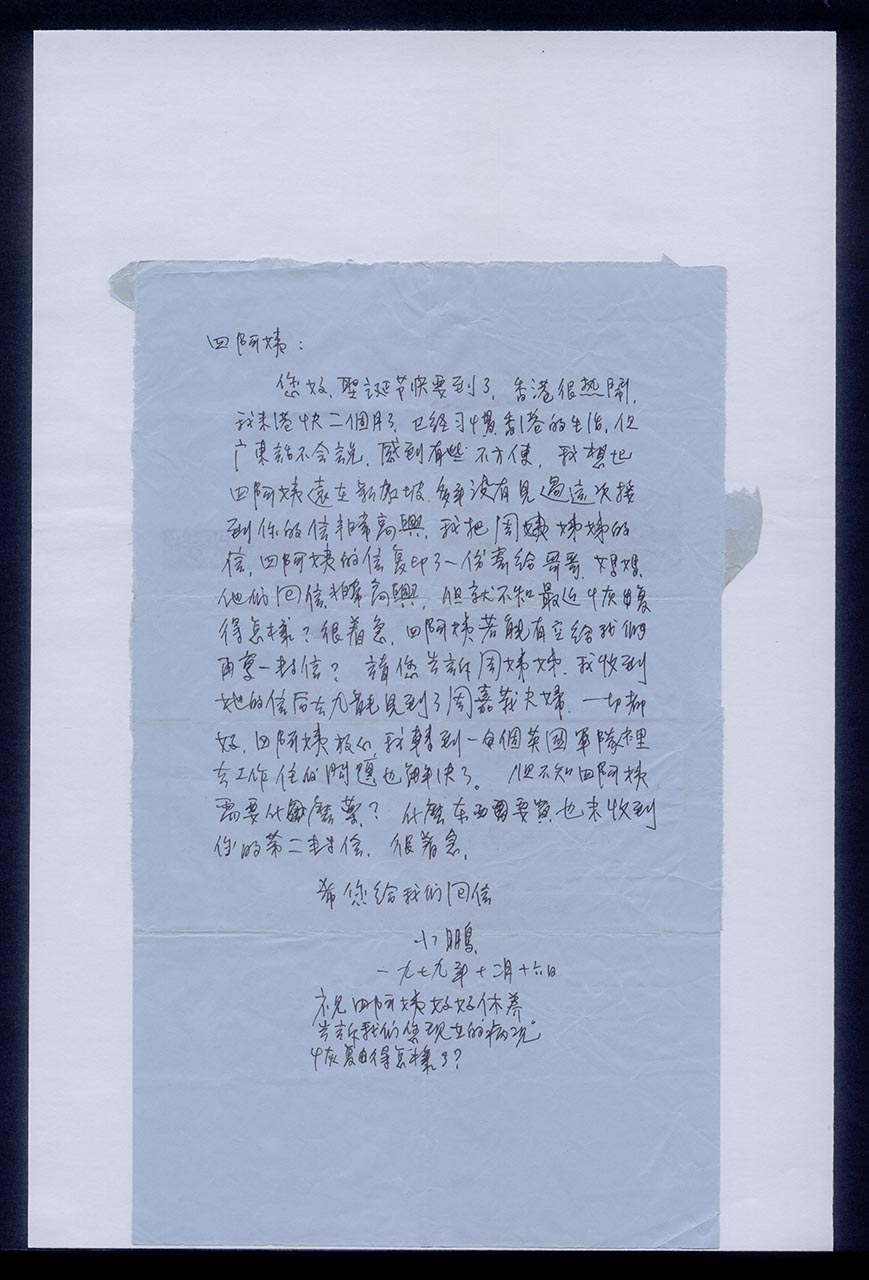 四阿姨：
您好，聖誕节快要到了，香港很热鬧，
我来港快二個月了，已经习惯香港的生活，但
广東話不会説，感到有些不方便，我想也
四阿姨遠在新加坡，多年没有見過這次接
到你的信非常高興，我把周姨姊姊的
信，四阿姨的信复印了一份寄给哥哥、妈妈，
他们回信非常高興，但就不知最近恢复
得怎樣？很着急，四阿姨若能有空给我们
再寫一封信？請您告訴周姊姊，我收到
她的信后去九龍見到了周嘉 夫婦，一切都
好，四阿姨放心，我轉到一個英國軍隊裡
去工作住的問題也解决了。但不知四阿姨
需要什麼藥？什麼东西需要買也未收到
你的第二封信，很着急，
希您给我们回信
小鵬
一九七九年十二月十六日
祝四阿姨好好休养
告訴我们您现在的病况。
恢复得怎樣了？